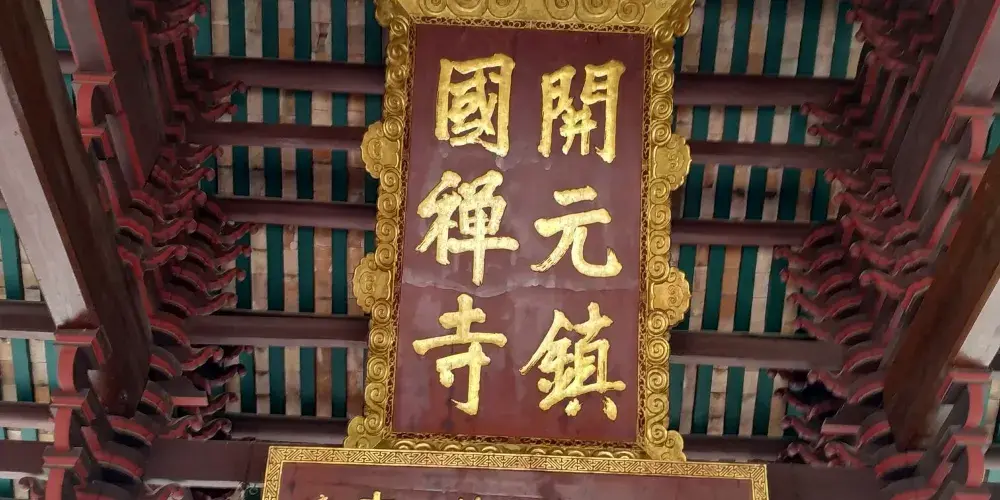 開元鎮
國禪寺